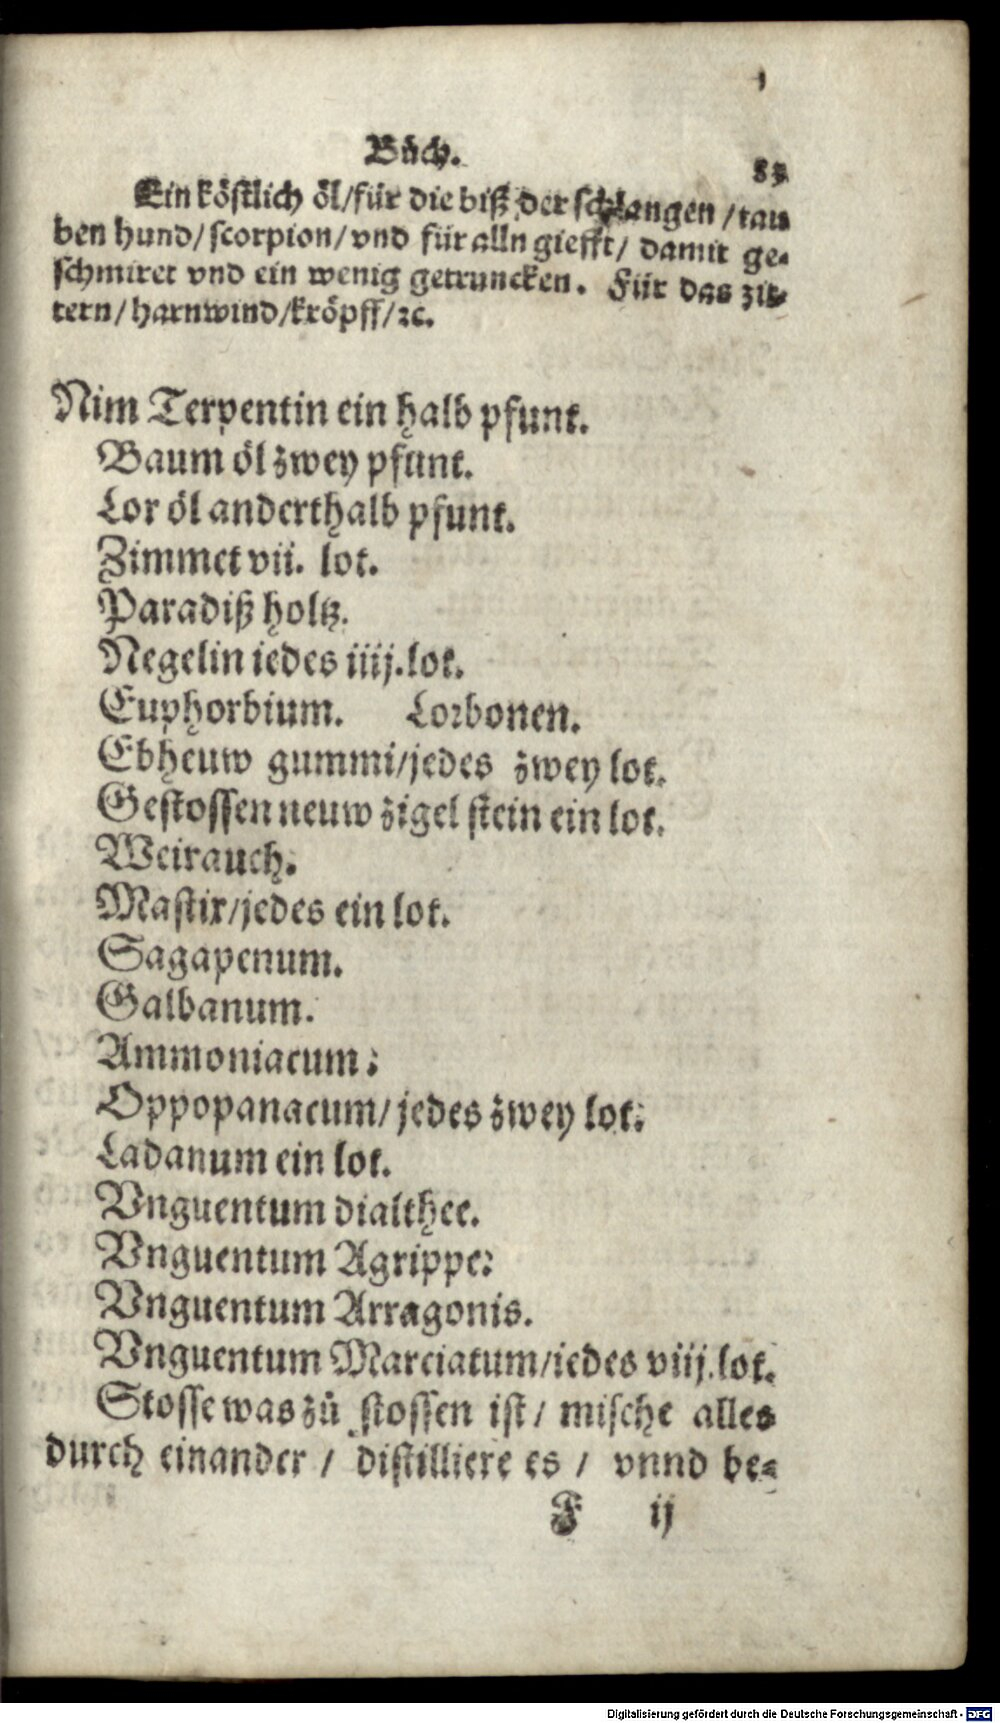 Bůch.
83
Ein köstlich öl/für die biß der schlangen /tau
ben hund/scorpion/vnd für alln giefft/ damit ge-
schmiret vnd ein wenig getruncken. Für das zit-
tern/harnwind/kröpff/ꝛc.
Nim Terpentin ein halb pfunt.
Baum öl zwey pfunt.
Lor öl anderthalb pfunt.
Zimmet vii. lot.
Paradiß holtz.
Negelin iedes iiij.lot.
Euphorbium. Lorbonen.
Ebheuw gummi/jedes zwey lot.
Gestossen neuw zigel stein ein lot.
Weirauch.
Mastix/jedes ein lot.
Sagapenum.
Galbanum.
Ammoniacum:
Oppopanacum/jedes zwey lot:
Ladanum ein lot.
Vnguentum dialthee.
Vnguentum Agrippe:
Vnguentum Arragonis.
Vnguentum Marciatum/iedes viij.lot.
Stosse was zů stossen ist/ mische alles
durch einander / distilliere es / vnnd be-
F ij
Digitalisierung gefördert durch die Deutsche Forschungsgemeinschaft - DFG